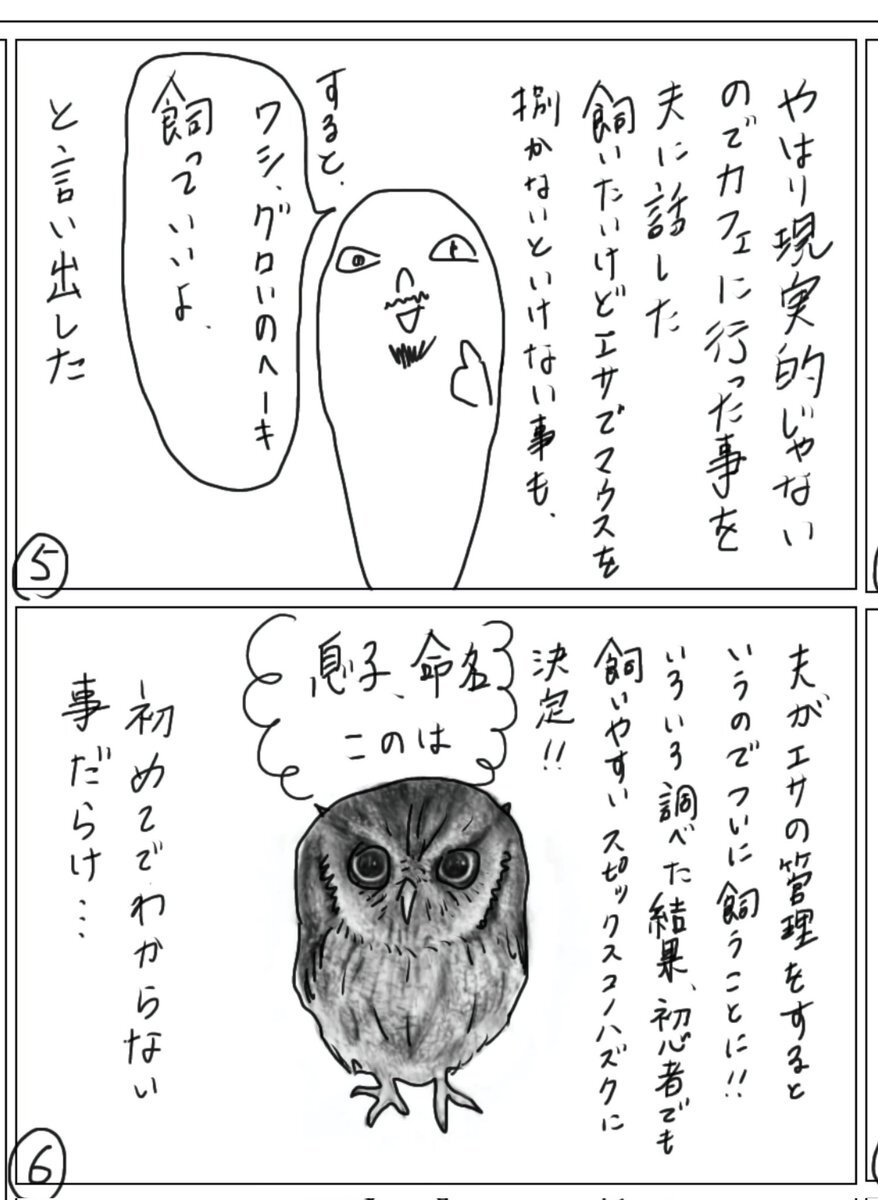 やはり現実的じゃない
のでカフェに行った事を
夫に話した
飼いたいけどエサでマウスを
捌かないといけない事も、
すると、
ワシ、グロいのヘーキ
飼っていいよ、
と、言い出した
5
夫がエサの管理をすると
いうのでついに飼うことに!!
いろいろ調べた結果、初心者でも
飼いやすいスピックスコノハズクに
決定!!
息子、命名
このは
初めてでわからない
事だらけ…
6